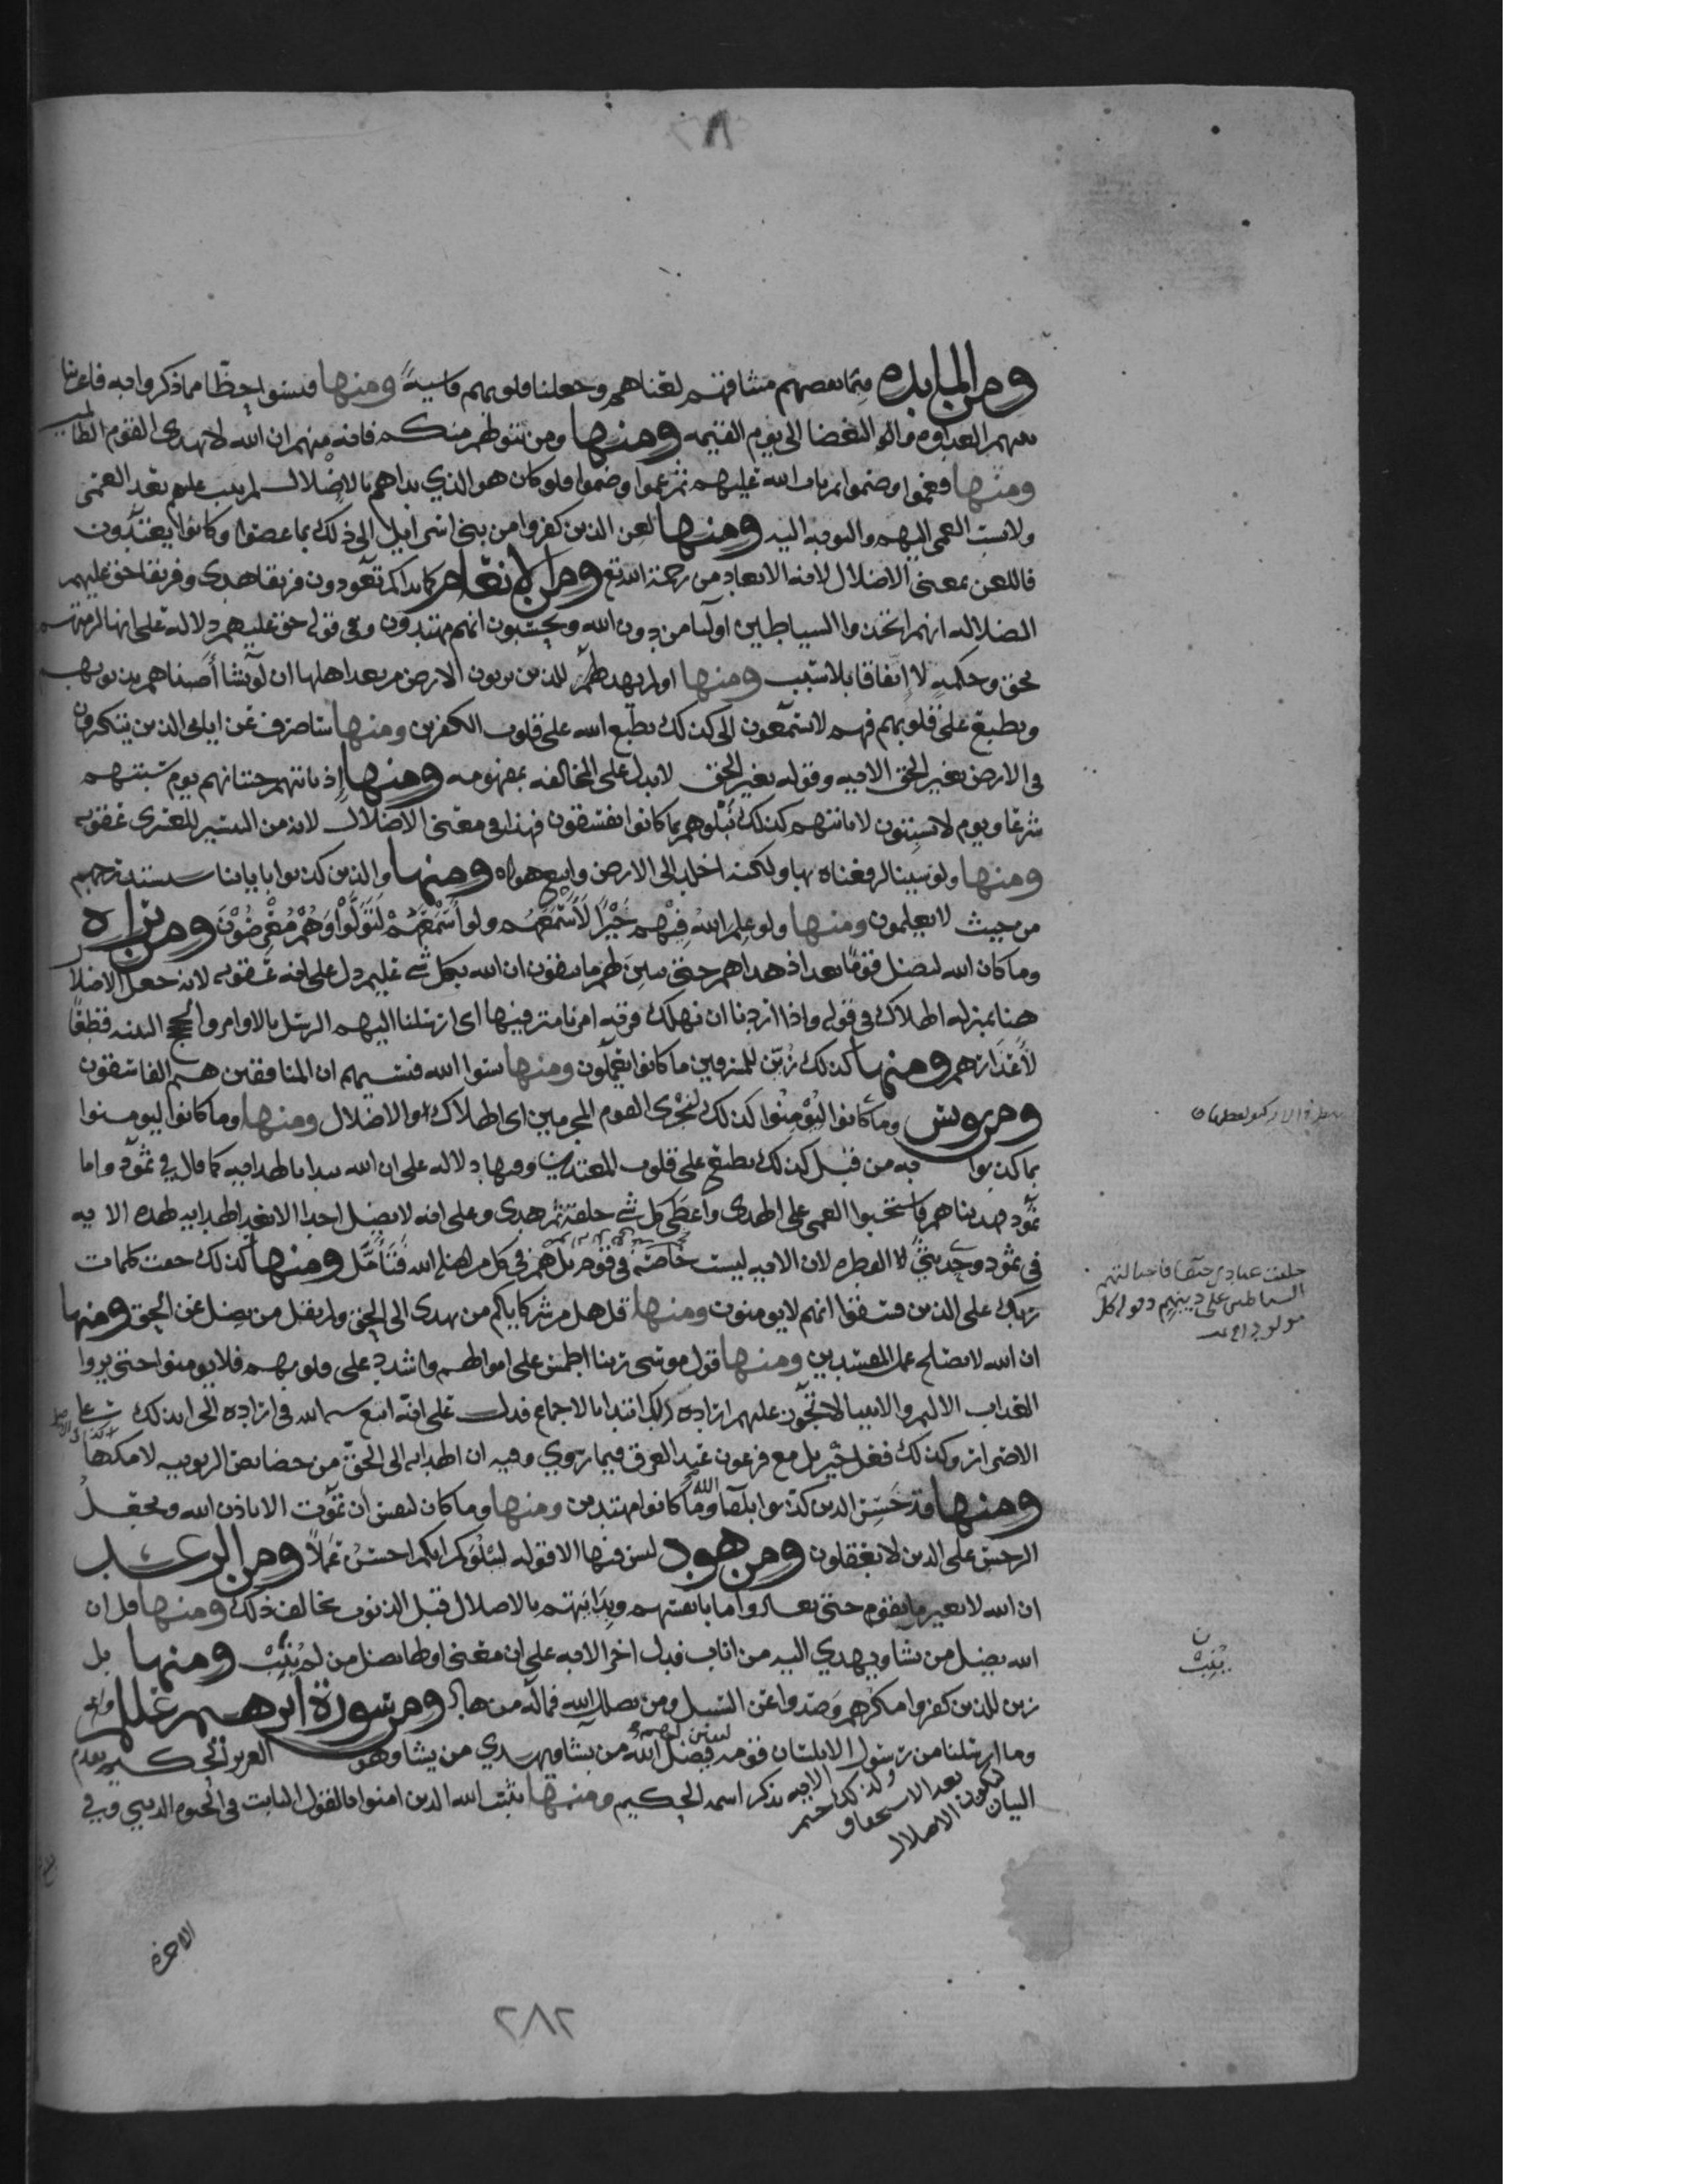 ومن المايده فبما نقضهم ميثاقهم لعناهم وجعلنا قلوبهم قاسية ومنها فنسوا حظا مما ذكروا به فاغرينا
بينهم العداوه والبغضا الى يوم القيمه ومنها ومن يتولهم منكم فانه منهم ان الله لا يهدي القوم الظالمين
ومنها فعموا وصموا ثم تاب الله عليهم ثم عموا وصموا فلو كان هو الذي بداهم بالاضلال لم يتب عليهم بعد العمى
ولا نسب العمى اليهم والتوبه اليه ومنها لعن الذين كفروا من بني اسرايل الى ذلك بما عصوا وكانوا يعتدون
فاللعن بمعنى الاضلال لانه الابعاد من رحمة الله تع ومن الانعام كما بداكم تعودون فريقا هدى وفريقا حق عليهم
الضلاله انهم اتخذوا الشياطين اوليا من دون الله ويحسبون انهم مهتدون وفي قوله حق عليهم دلاله على انها لزمتهم
بحق وحكمة لا اتفاقا بلا سبب ومنها اولم يهد للذين يرثون الارض من بعد اهلها ان لو نشا اصبناهم بذنوبهم
ونطبع على قلوبهم فهم لا يسمعون الى كذلك يطبع الله على قلوب الكفرين ومنها ساصرف عن اياتي الذين يتكبرون
في الارض بغير الحق الايه وقوله بغير الحق لا يدل على المخالفه بمفهومه ومنها اذ تاتيهم حيتانهم يوم سبتهم
شرعا ويوم لا يسبتون لا تاتيهم كذلك نبلوهم بما كانوا يفسقون فهذا في معنى الاضلال لانه من التيسير للعسرى عقوبه
ومنها ولو شينا لرفعناه بها ولكنه اخلد الى الارض واتبع هواه ومنها والذين كذبوا باياتنا سنستدرجهم
من حيث لا يعلمون ومنها ولو علم الله فيهم خيرا لاسمعهم ولو اسمعهم لتولوا وهم معرضون ومن براه
وما كان الله ليضل قوما بعد اذ هداهم حتى يبين لهم ما يتقون ان الله بكل شي عليم دل على انه عقوبه لانه جعل الاضلال
هنا بمنزله الهلاك في قوله واذا اردنا ان نهلك قريه امرنا مترفيها اي ارسلنا اليهم الرسل بالاوامر والحجج البينه قطعا
لاعذارهم ومنها كذلك زين للمسرفين ما كانوا يعملون ومنها نسوا الله فنسيهم ان المنافقين هم الفاسقون
ومن يونس وما كانوا ليؤمنوا كذلك نجزى القوم المجرمين اي الهلاك او الاضلال ومنها وما كانوا ليومنوا
بما كذبوا به من قبل كذلك نطبع على قلوب المعتدين وفيها دلاله على ان الله يبدا بالهدايه كما قال في ثمود واما
ثمود فهديناهم فاستحبوا العمى على الهدى واعطى كل شي خلقه ثم هدى وعلى انه لا يضل احدا الا بعد الهدايه لهذه الايه
في ثمود وحديث الفطره لان الايه ليست خاصه في قوم بل هم في كل من اضله الله فتامل ومنها كذلك حقت كلمات
ربك على الذين فسقوا انهم لا يومنون ومنها قل هل من شركايكم من يهدى الى الحق ولم يقل من يضل عن الحق ومنها
ان الله لا يصلح عمل المفسدين ومنها قول موسى ربنا اطمس على اموالهم واشدد على قلوبهم فلا يومنوا حتى يروا
العذاب الاليم والانبيا لا تجوز عليهم اراده ذلك ابتدا بالاجماع فدل على انه اتبع الله في ارادته
الاضرار وكذلك فعل جبريل مع فرعون عند الغرق فيما روي وفيه ان الهدايه الى الحق من خصايص الربوبيه
ومنها قد خسر الذين كذبوا بلقا الله وما كانوا مهتدين ومنها وما كان لنفس ان تموت الا باذن الله ويجعل
الرجس على الذين لا يعقلون ومن هود ليس فيها الا قوله ليبلوكم ايكم احسن عملا ومن الرعد
ان الله لا يغير ما بقوم حتى يغيروا ما بانفسهم وبدايتهم بالاضلال قبل الذنوب يخالف ذلك ومنها قل ان
الله يضل من يشا ويهدي اليه من اناب فدل اخر الايه على ان معنى اولها يضل من لم ينب ومنها بل
زين للذين كفروا مكرهم وصدوا عن السبيل ومن يضلل الله فما له من هاد ومن سورة ابرهيم عللم
وما ارسلنا من رسول الا بلسان قومه ليبين لهم فيضل الله من يشا ويهدي من يشا وهو العزيز الحكيم
البيان ليكون بعد الاستحقاق الاضلال ولذلك ختم الايه بذكر اسمه الحكيم ومنها يثبت الله الذين امنوا بالقول الثابت في الحيوه الدنيا وفي
الاخرة
خلقت عبادي حنفا فاجتالتهم
الشياطين على دينهم وقوله كل
مولود
ن
ينب
٢٨٢